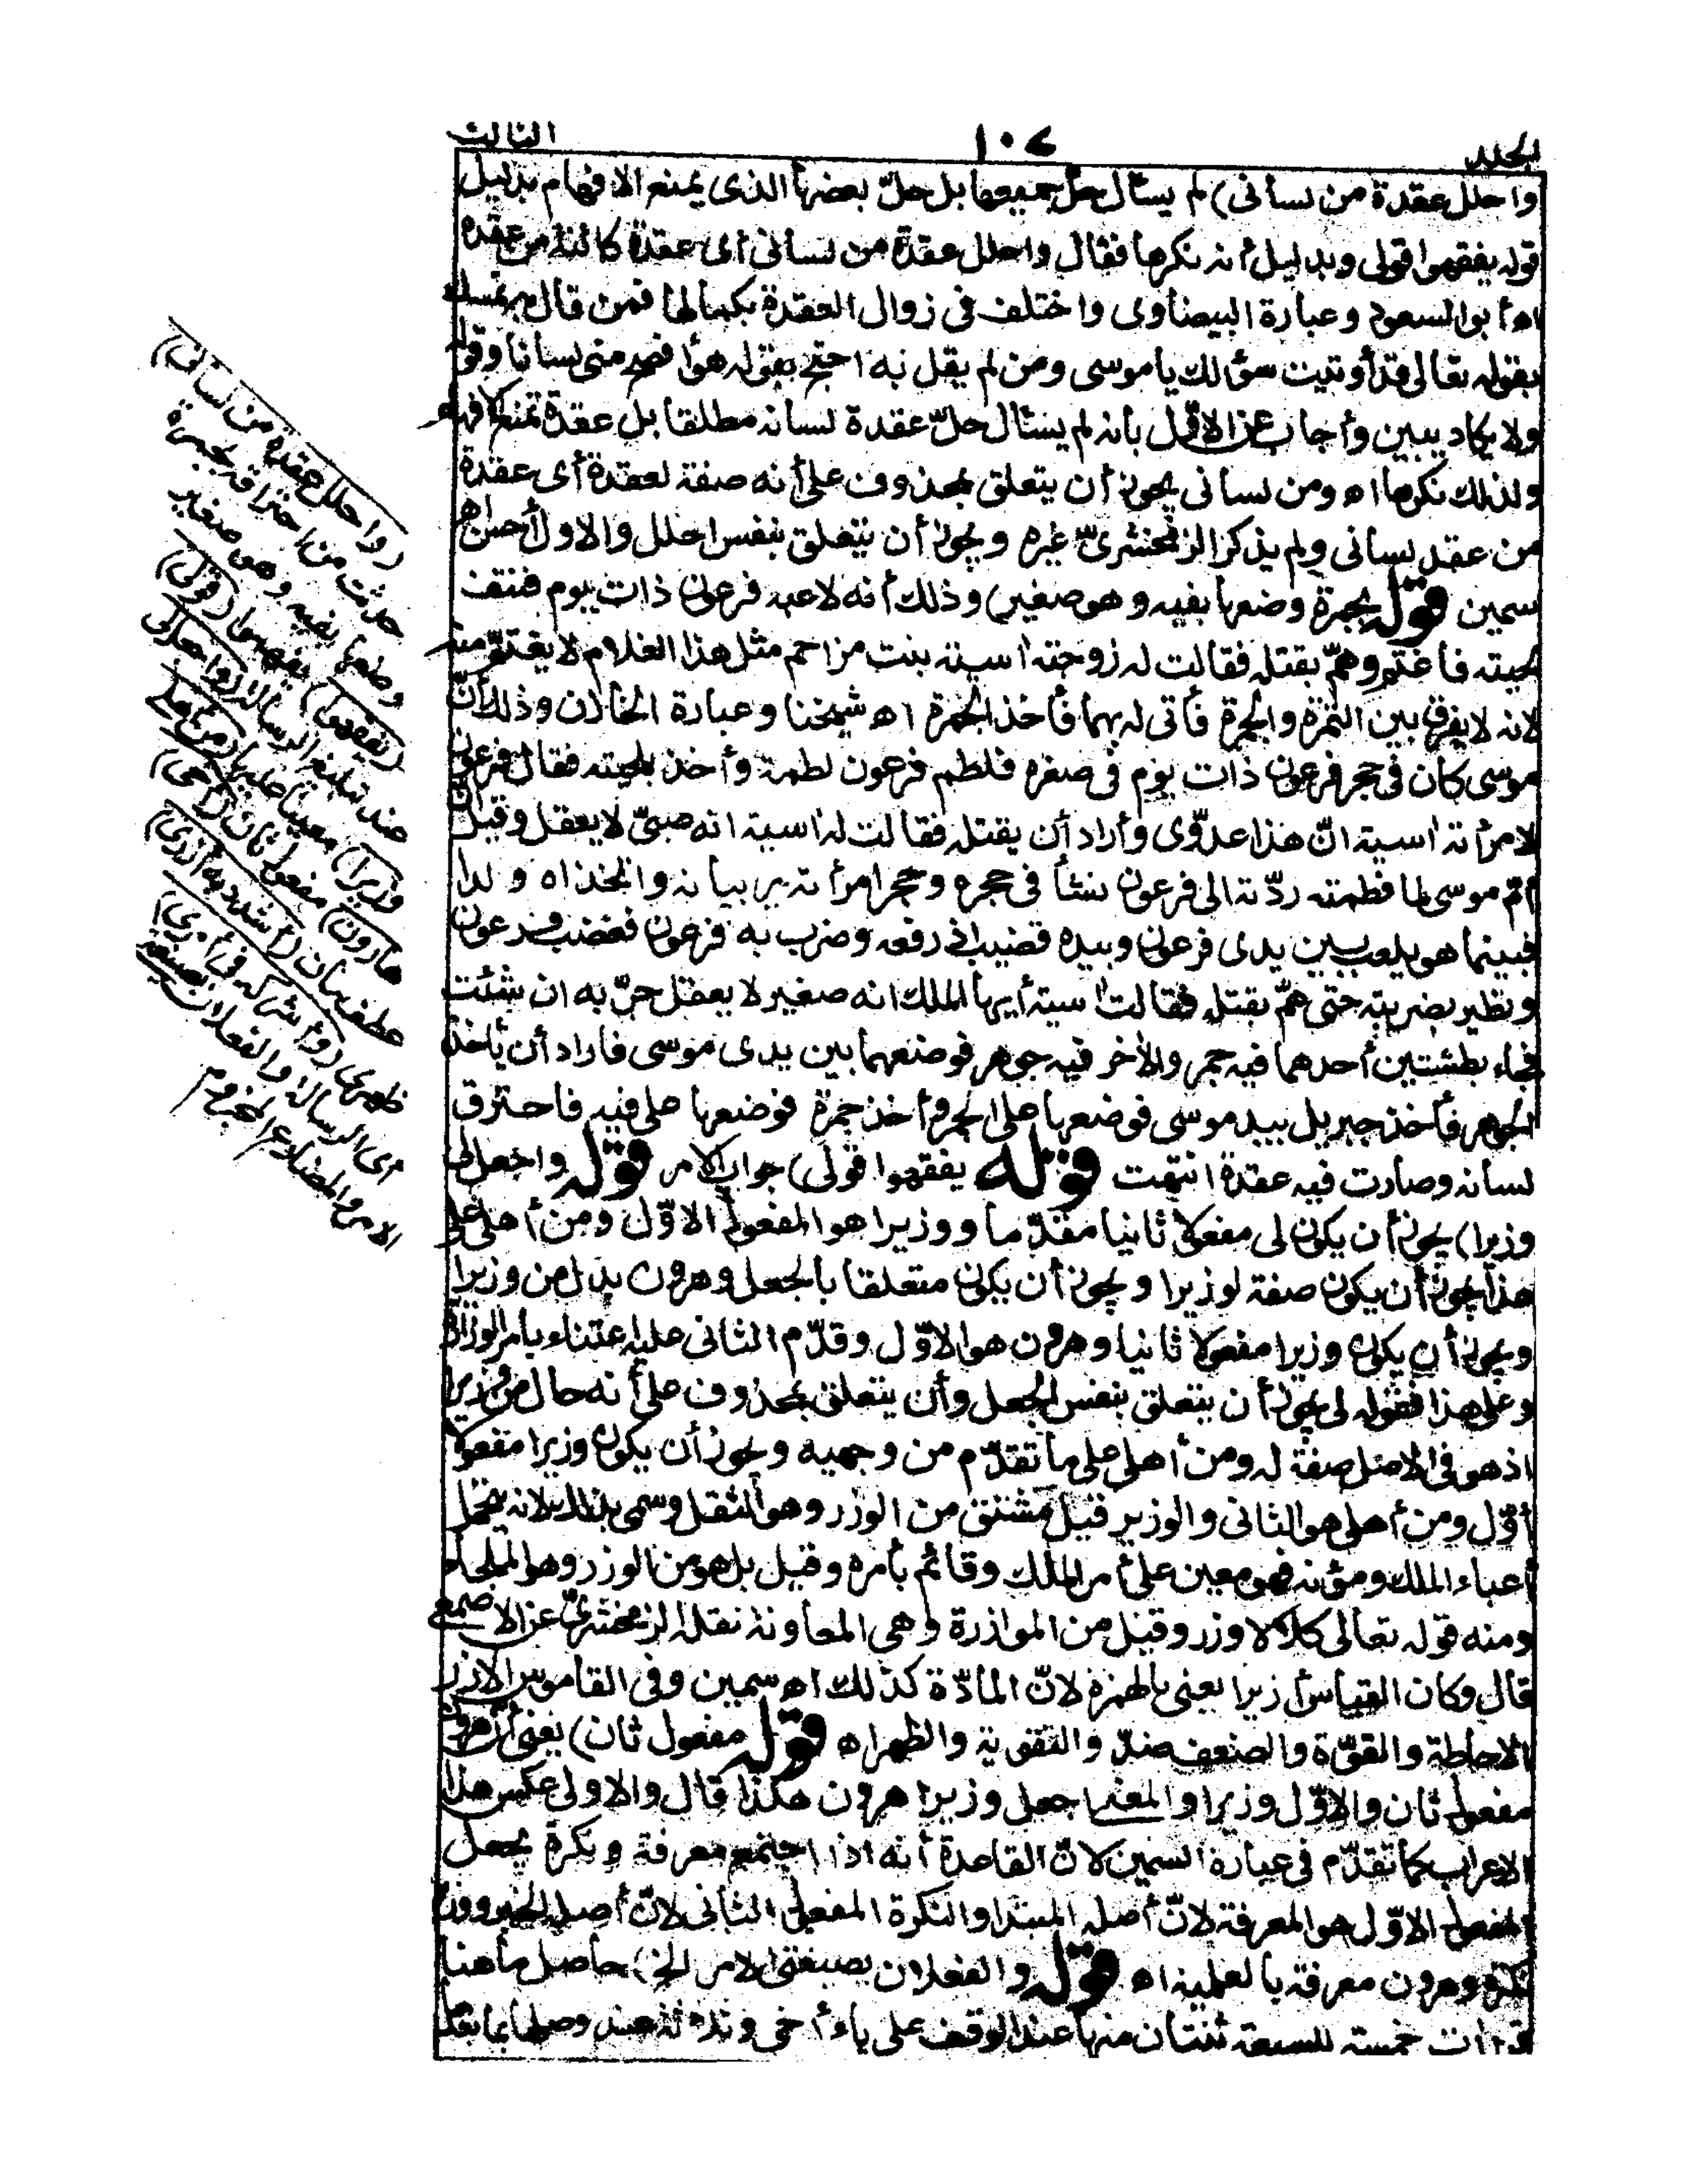 الجلد ١٠٧ الثالث
واحلل عقدة من لسانى) لم يسأل حل جميعها بل حلّ بعضها الذى يمنع الافهام بدليل
قوله يفقهوا قولى وبدليل أنه نكرها فقال واحلل عقدة من لسانى أى عقدة كائنة من عقده
اه أبو السعود وعبارة البيضاوى واختلف فى زوال العقدة بكمالها فمن قال به تمسك
بقوله تعالى قد أوتيت سؤلك ياموسى ومن لم يقل به احتج بقوله هو أفصح منى لسانا وقوله
ولا يكاد يبين وأجاب عن الاوّل بأنه لم يسأل حلّ عقدة لسانه مطلقا بل عقدة تمنع الافهام
ولذلك نكرها اه ومن لسانى يجوز أن يتعلق بمحذوف على أنه صفة لعقدة أى عقدة
من عقد لسانى ولم يذكر الزمخشرىّ غيره ويجوز أن يتعلق بنفس احلل والاول أحسن اه
سمين قوله بجمرة وضعها بفيه وهو صغير) وذلك أنه لاعبه فرعون ذات يوم فنتف
لحيته فاغتم وهمّ بقتله فقالت له زوجته اسية بنت مزاحم مثل هذا الغلام لا يغتمّ منه
لانه لا يفرق بين التمرة والجمرة فأتى له بهما فأخذ الجمرة اه شيخنا وعبارة الخازن وذلك أنّ
موسى كان فى حجر فرعون ذات يوم فى صغره فلطم فرعون لطمة وأخذ بلحيته فقال فرعون
لامرأته اسية انّ هذا عدوّى وأراد أن يقتله فقالت له اسية انه صبىّ لا يعقل وقيل انّ
أمّ موسى لما فطمته ردّته الى فرعون نشأ فى حجره وحجر امرأته يربيانه واتخذاه ولدا
فبينما هو يلعب بين يدى فرعون وبيده قضيب اذ رفعه وضرب به فرعون فغضب فرعون
وتطير بضربته حتى همّ بقتله فقالت اسية أيها الملك انه صغير لا يعقل جرّبه ان شئت
فجاء بطشتين أحدهما فيه جمر والأخر فيه جوهر فوضعهما بين يدى موسى فاراد أن يأخذ
الجوهر فأخذ جبريل بيد موسى فوضعها على الجمر وأخذ جمرة فوضعها على فيه فاحترق
لسانه وصارت فيه عقدة انتهت قوله يفقهوا قولى) جواب الامر قوله واجعل لى
وزيرا) يجوز أن يكون لى مفعولا ثانيا مقدّما ووزيرا هو المفعول الاوّل ومن أهلى على
هذا يجوز أن يكون صفة لوزيرا ويجوز أن يكون متعلقا بالجعل وهرون بدل من وزيرا
ويجوز أن يكون وزيرا مفعولا ثانيا وهرون هو الاوّل وقدّم الثانى عليه اعتناء بأمر الوزارة
وعلى هذا فقوله لى يجوز أن يتعلق بنفس الجعل وأن يتعلق بمحذوف على أنه حال من وزيرا
اذ هو فى الاصل صفة له ومن أهلى على ما تقدّم من وجهيه ويجوز أن يكون وزيرا مفعولا
أوّل ومن أهلى هو الثانى والوزير قيل مشتق من الوزر وهو الثقل وسمى بذلك لانه يتحمل
أعباء الملك ومؤنه فهو معين على أمر الملك وقائم بأمره وقيل بل هو من الوزر وهو الملجأ
ومنه قوله تعالى كلا لا وزر وقيل من الموازرة وهى المعاونة نقله الزمخشرىّ عن الاصمعى
قال وكان القياس أزيرا يعنى بالهمزة لانّ المادّة كذلك اه سمين وفى القاموس الازر
الاحاطة والقوّة والضعف ضدّ والتقوية والظهر اه قوله مفعول ثان) يعنى أن هرون
مفعول ثان والاوّل وزيرا والمعنى اجعل وزيرا هرون هكذا قال والاولى عكس هذا
الاعراب كما تقدّم فى عبارة السمين لانّ القاعدة أنه اذا اجتمع معرفة ونكرة يجعل
المفعول الاوّل هو المعرفة لانّ أصله المبتدا والنكرة المفعول الثانى لانّ أصله الخبر ووزيرا
نكرة وهرون معرفة بالعلمية اه قوله والفعلان بصيغتى الامر الخ) حاصل ما هنا
قراءات خمسة للسبعة ثنتان منها عند الوقف على ياء أخى وثلاثة عند وصلها بما بعد
(واحلل عقدة من لسانى)
حدثت من احتراقه بجمرة
وضعها بفيه وهو صغير
(يفقهوا) يفهموا (قولى)
عند تبليغ الرسالة (واجعل لى
وزيرا) معينا عليها (من أهلى
هارون) مفعول ثان (أخى)
عطف بيان (أشدد به أزرى)
ظهرى (وأشركه فى أمرى)
أى الرسالة والفعلان بصيغتى
الامر والمضارع المجزوم